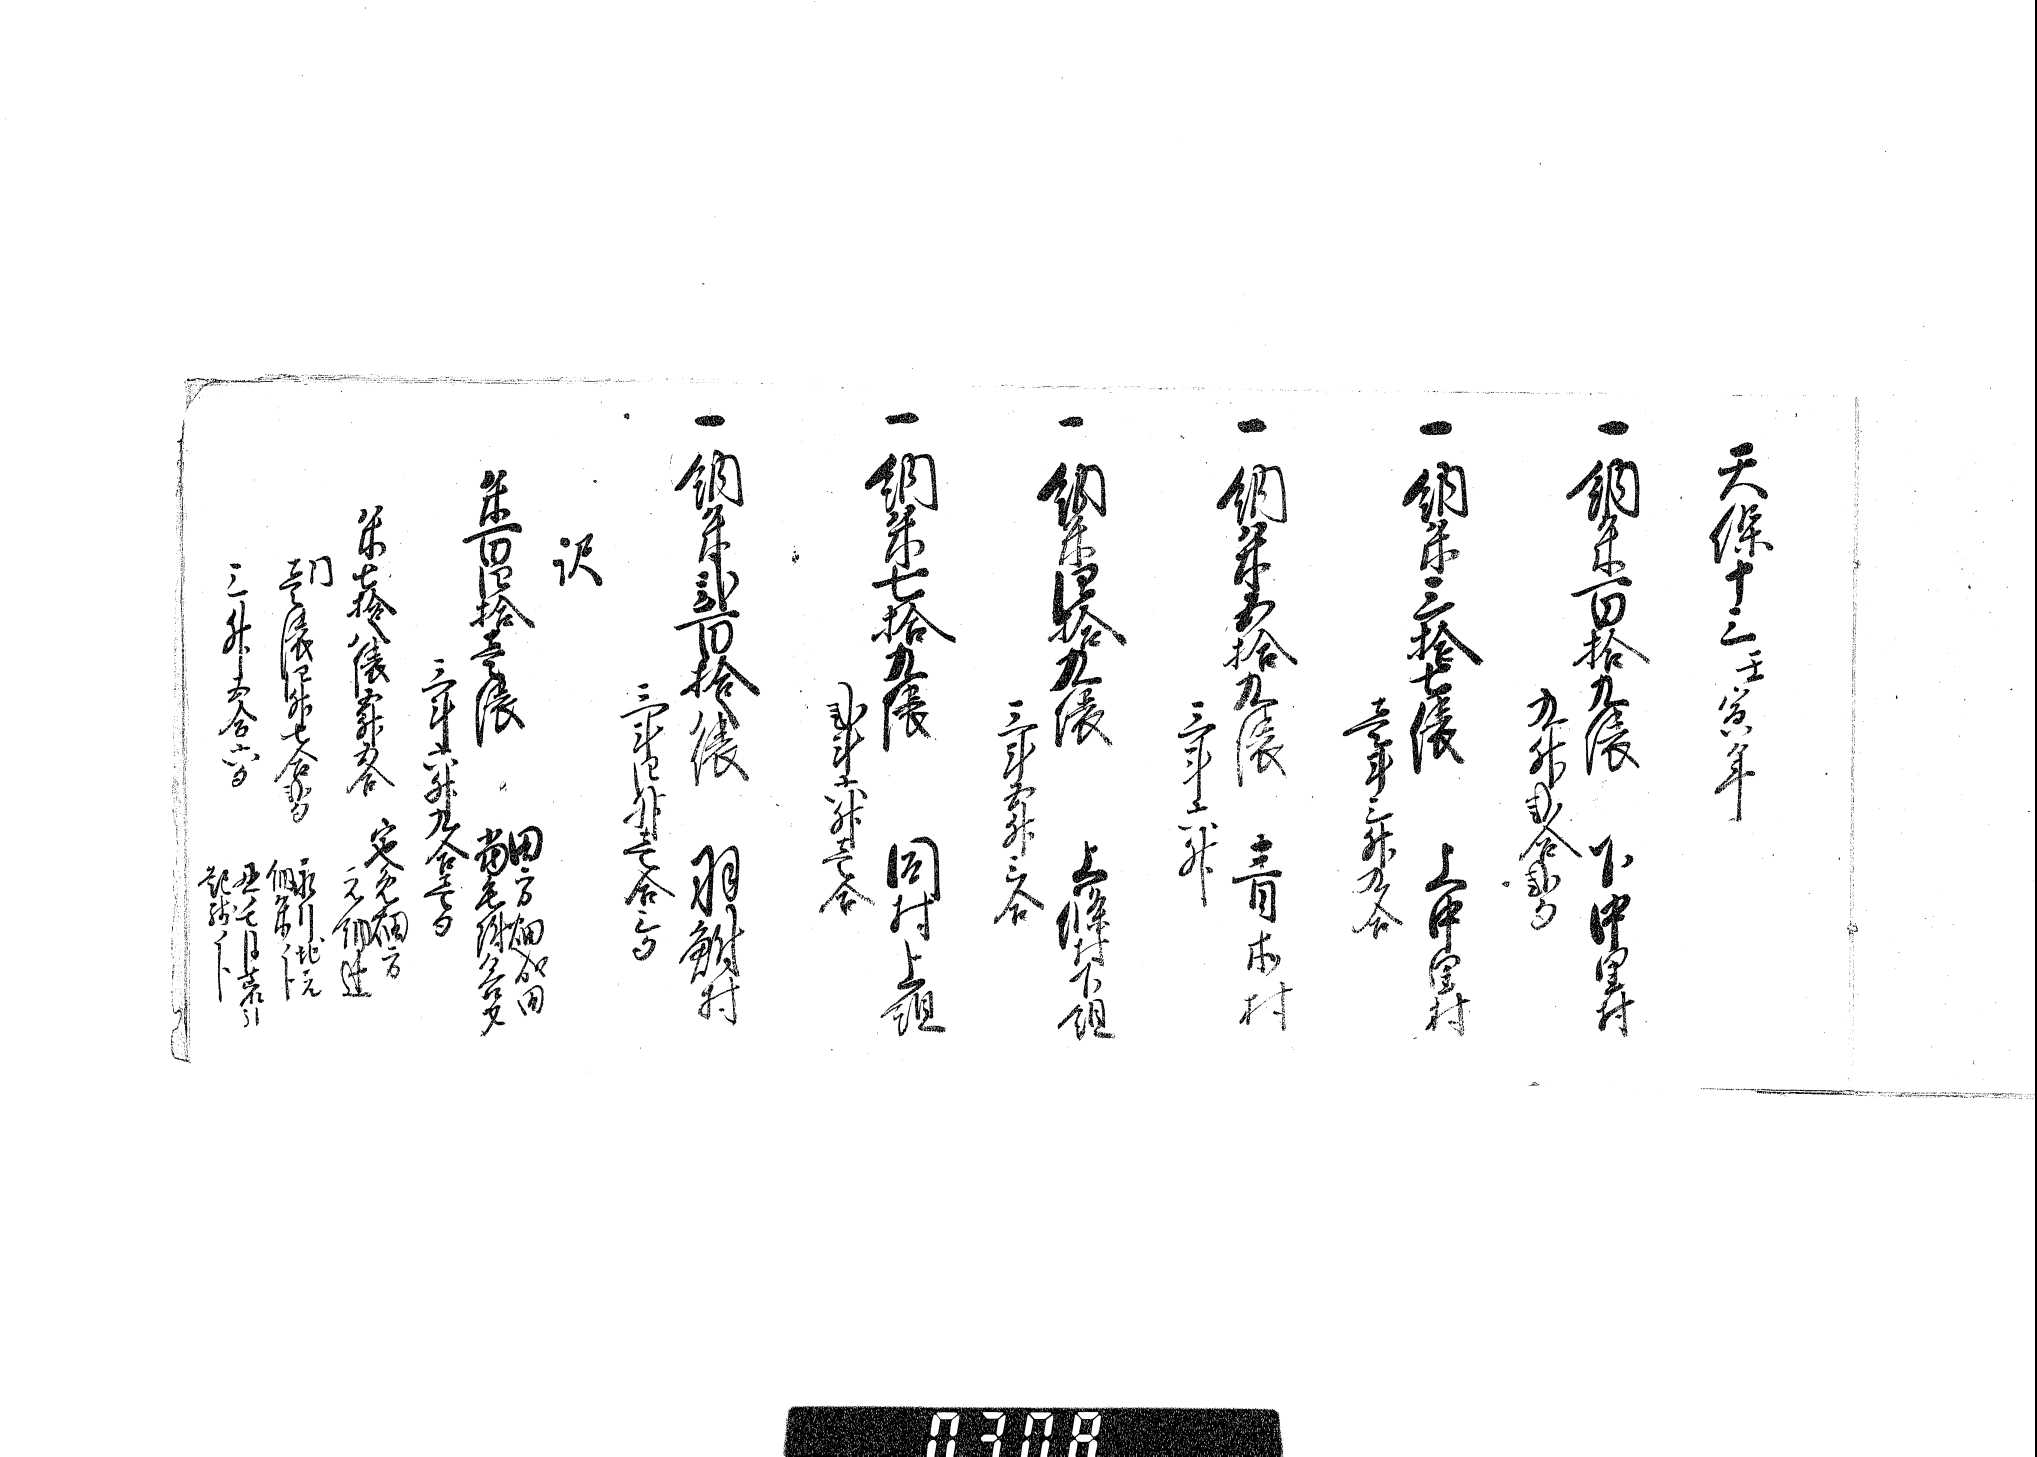 天保十三壬寅年
一 納米百拾九俵 下中里村
九升弐合弐勺
一 納米三拾七俵 上中里村
壱斗三升九合
一 納米五拾九俵 青木村
三斗六升
一 納米四拾九俵 上條村下組
三斗五升三合
一 納米七拾九俵 同村上組
弐斗六升壱合
一 納米弐百拾八俵 羽鮒村
三斗四升壱合三勺
訳
米百四拾壱俵 田方畑成田
当毛附合分
三斗六升九合壱勺
米七拾八俵 五升五合 定免畑方
元納辻
内
壱俵四升七合弐勺 永川地元
個米ノ下
三升五合六勺
0308